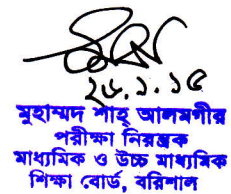 ২৬.১.১৫
মুহাম্মদ শাহ্ আলমগীর
পরীক্ষা নিয়ন্ত্রক
মাধ্যমিক ও উচ্চ মাধ্যমিক
শিক্ষা বোর্ড, বরিশাল